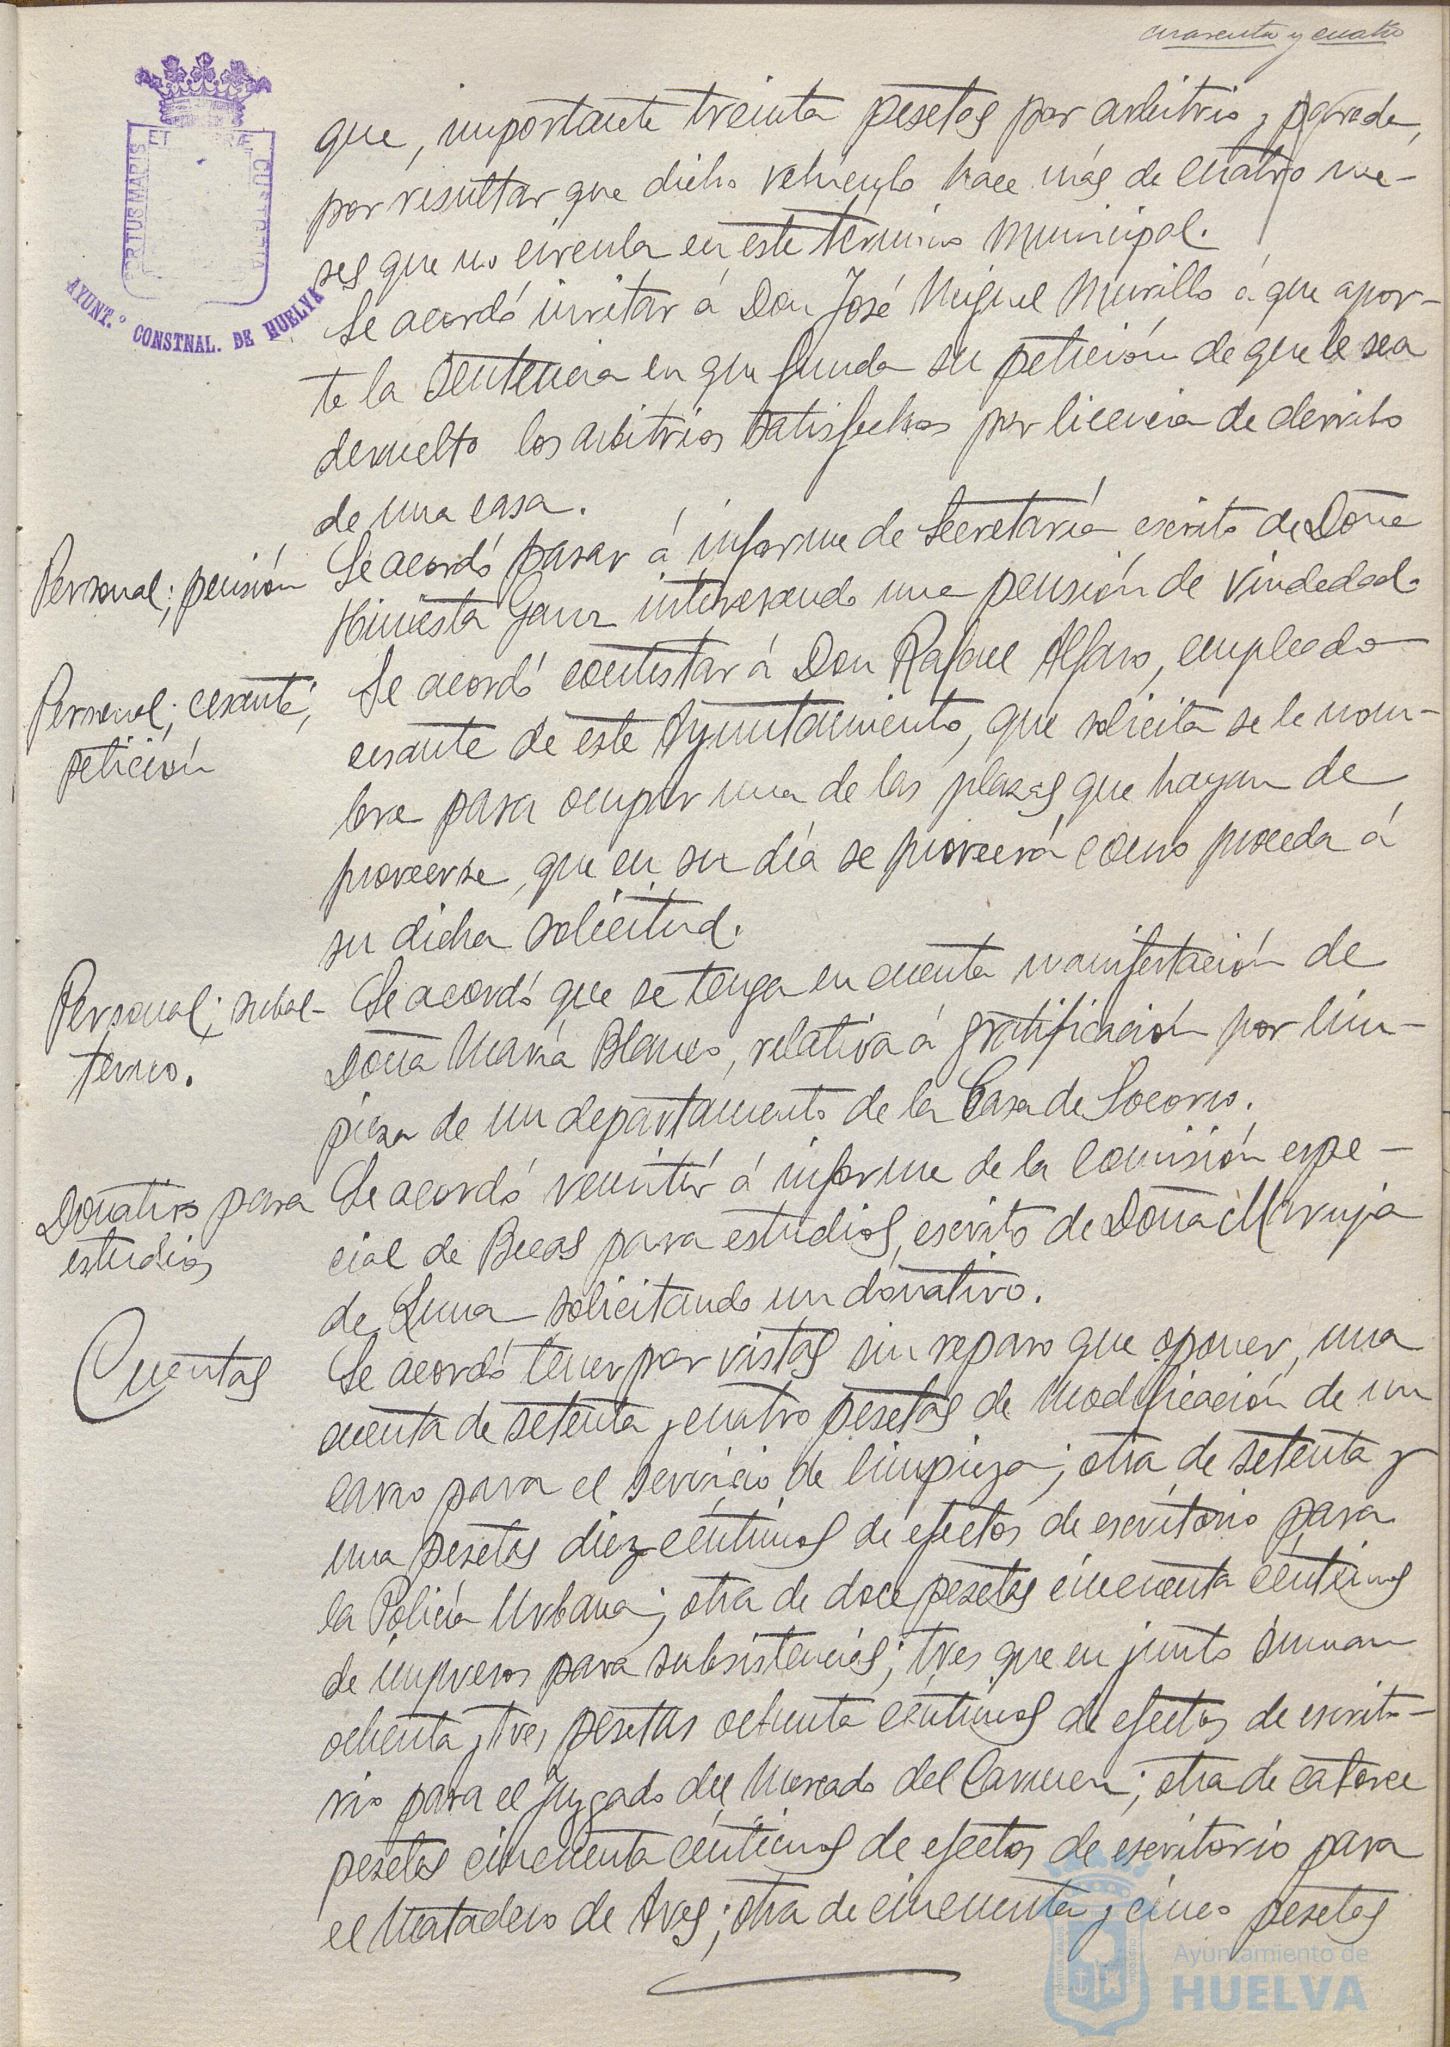 cuarenta y cuatro
PORTUS MARIS ET TERRÆ CUSTODIA
AYUNT.º CONSTNAL. DE HUELVA
que, importante treinta pesetas por arbitrio y parada,
por resultar que dicho vehículo hace más de cuatro me-
ses que no circula en este término municipal.
Se acordó invitar á Don José Miguel Murillo á que apor-
te la sentencia en que funda su petición de que le sea
devuelto los arbitrios satisfechos por licencia de derribo
de una casa.
Personal; pensión
Se acordó pasar á informe de Secretaría escrito de Doña
Hiniesta interesando una pensión de viudedad.
Personal; cesante;
petición
Se acordó contestar á Don Rafael Alfaro, empleado
cesante de este Ayuntamiento, que solicita se le nom-
bre para ocupar una de las plazas que hayan de
proveerse, que en su día se proveerá como proceda á
su dicha solicitud.
Personal; subal-
terno.
Se acordó que se tenga en cuenta manifestación de
Doña María Blanco, relativa á gratificación por lim-
pieza de un departamento de la Casa de Socorro.
Donativo para
estudios
Se acordó remitir á informe de la Comisión espe-
cial de Becas para estudios, escrito de Doña Maruja
de Luna solicitando un donativo.
Cuentas
Se acordó tener por vistas sin reparo que oponer, una
cuenta de setenta y cuatro pesetas de modificación de un
carro para el servicio de limpieza; otra de setenta y
una pesetas diez céntimos de efectos de escritorio para
la Policía Urbana; otra de doce pesetas cincuenta céntimos
de impresos para subsistencias; tres que en junto suman
ochenta y tres pesetas ochenta céntimos de efectos de escrito-
rio para el Juzgado del Mercado del Carmen; otra de catorce
pesetas cincuenta céntimos de efectos de escritorio para
el Matadero de Aves; otra de cincuenta y cinco pesetas
Ayuntamiento de
HUELVA